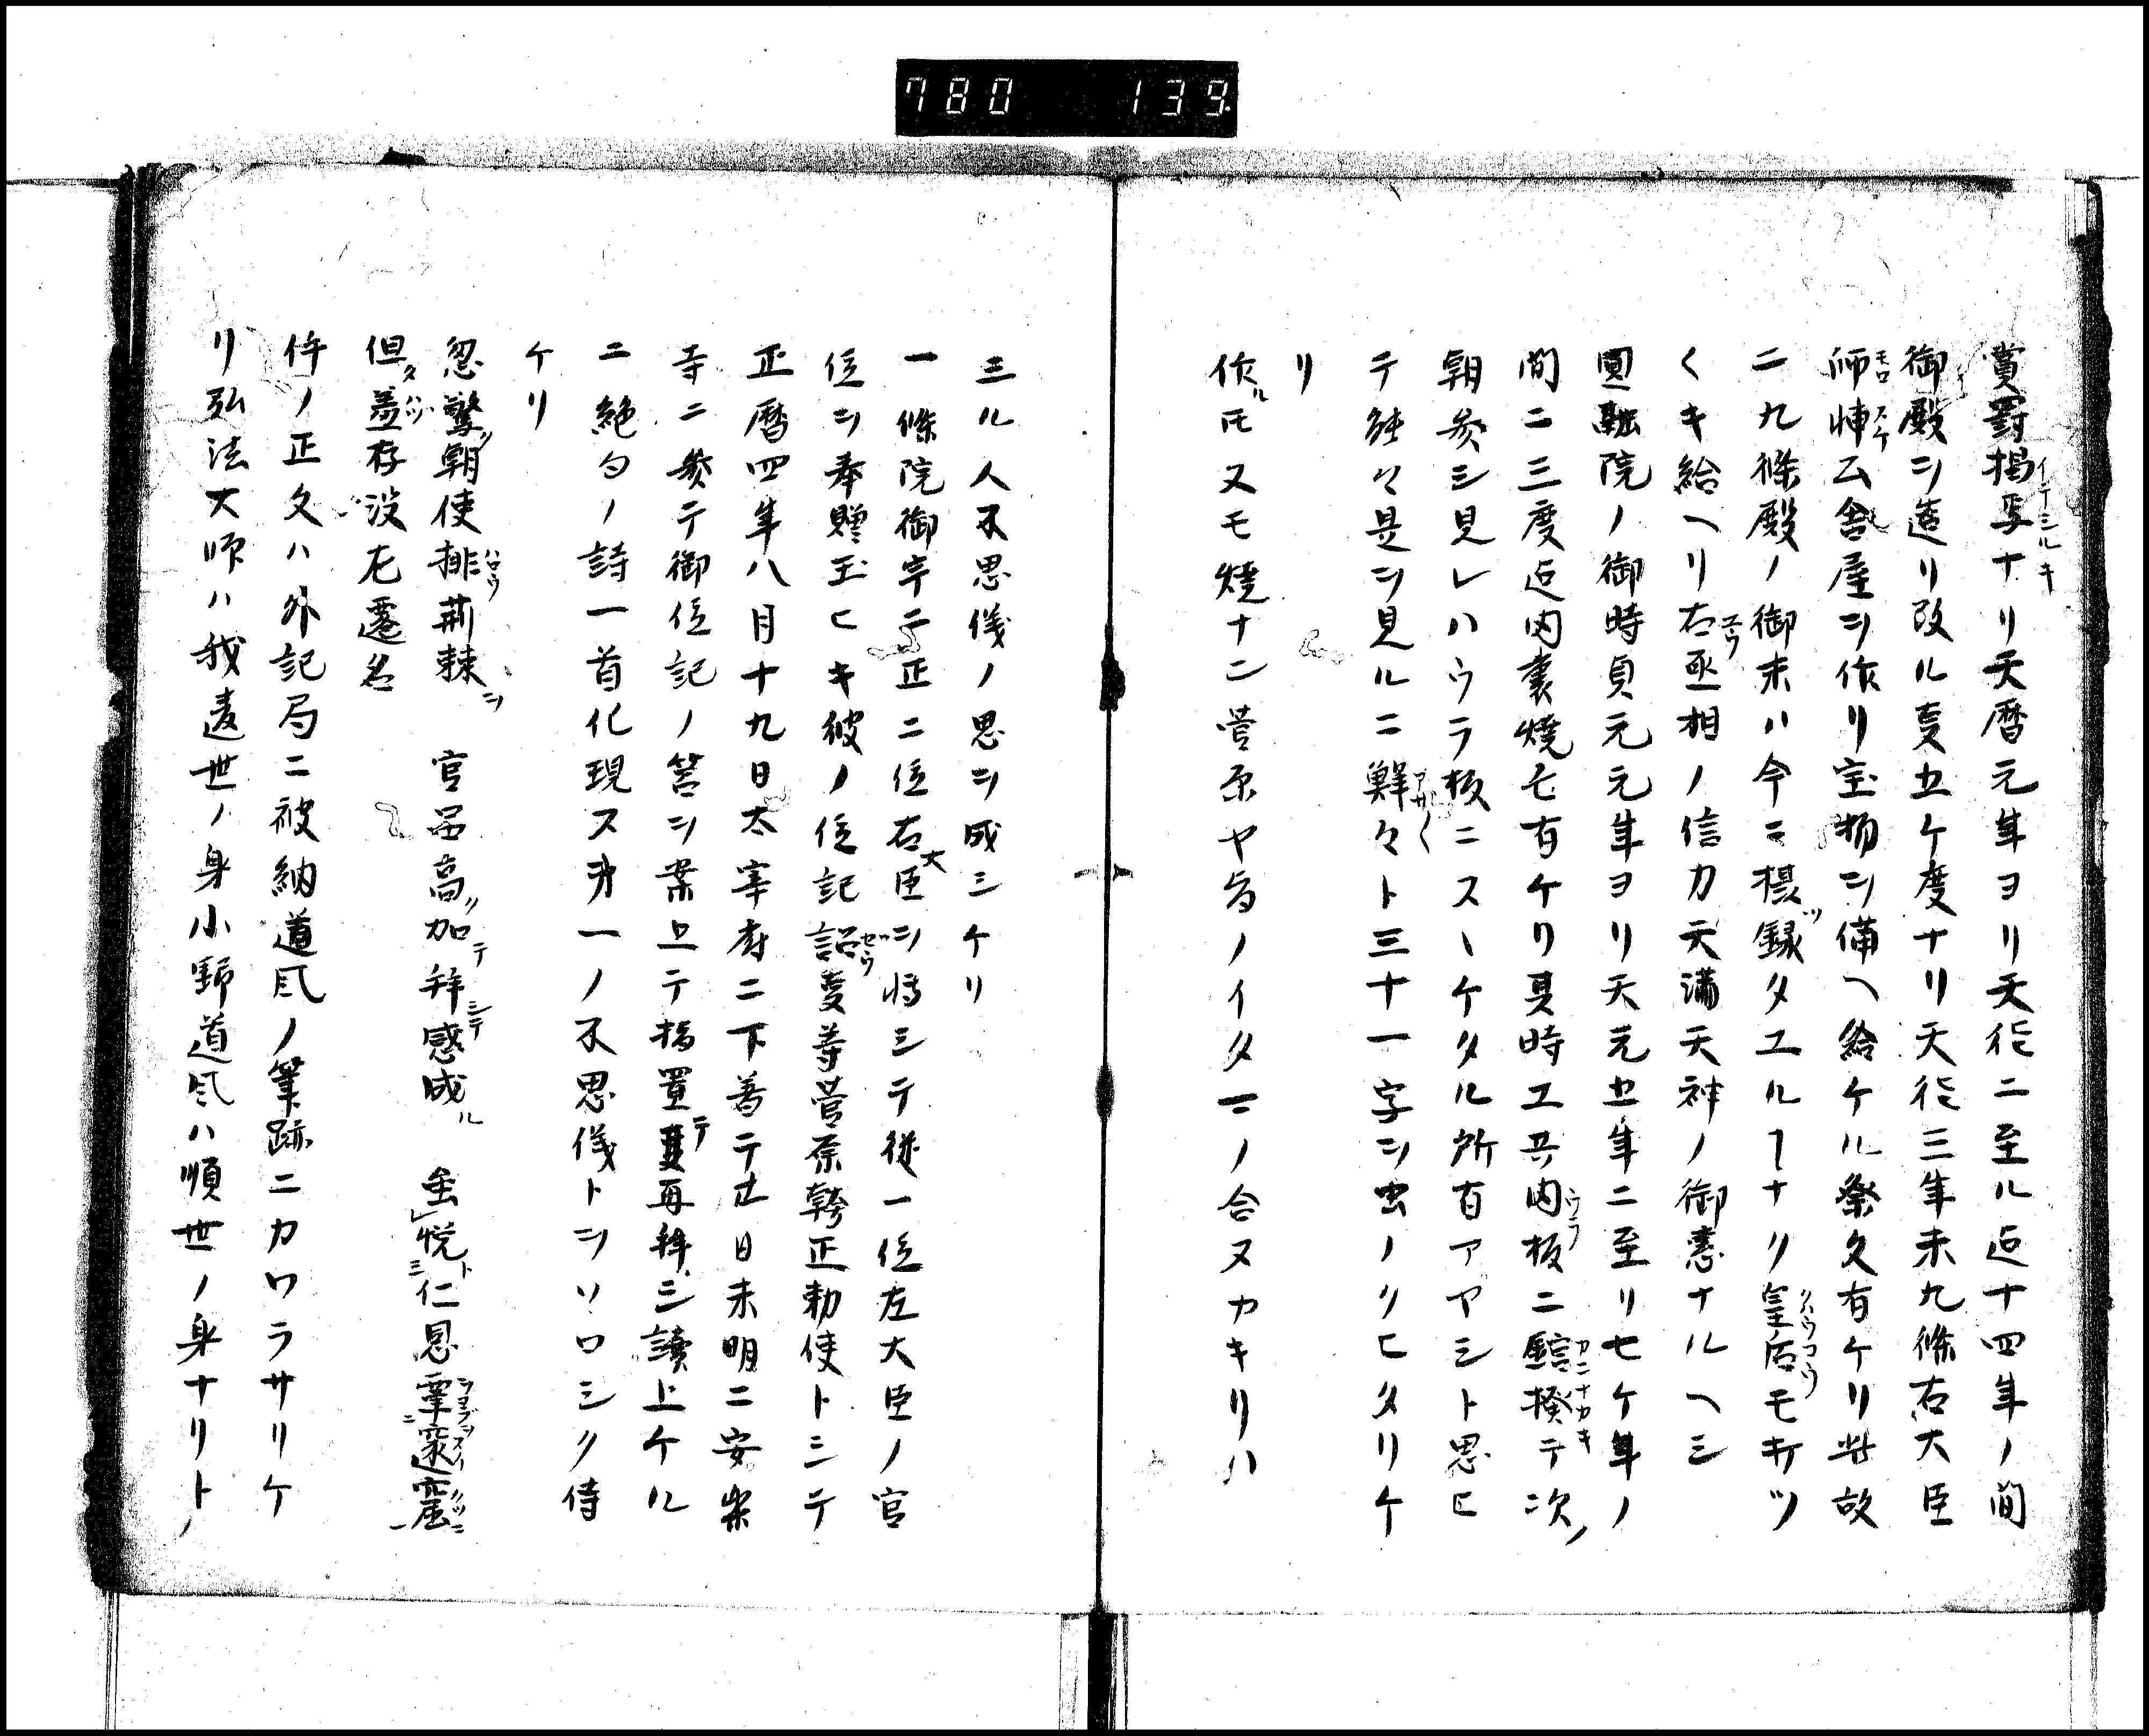 780 139
賞罰掲焉ナリ天暦元年ヨリ天徳ニ至ル迠十四年ノ間
御殿ヲ造リ改ル支五ケ度ナリ天徳三年未九條右大臣
師輔公舎屋ヲ作リ宝物ヲ備ヘ給ケル祭文有ケリ此故
ニ九條殿ノ御末ハ今ニ摂録タエルヿナリ皇后モキツ
くキ給ヘリ右丞相ノ信力天満天神ノ御恵ナルヘシ
圓融院ノ御時貞元元年ヨリ天元五年ニ至リ七ケ年ノ
間ニ三度迠内裏焼亡有ケリ其時工共内板ニ鉋掻テ次ノ
朝参シ見レハウラ板ニスヽケタル所有アヤシト思ヒ
テ能々是ヲ見ルニ鮮々ト三十一字ヲ虫ノクヒタリケ
リ
作ルモ又モ焼ナン菅原ヤ旨ノイタマノ合ヌカキリハ
三ル人不思儀ノ思ヲ成シケリ
一條院御宇ニ正二位右大臣ヲ将シテ従一位左大臣ノ官
位ヲ奉贈玉ヒキ彼ノ位記詔受等菅原幹正勅使トシテ
正暦四年八月十九日太宰府ニ下着テ廿日未明ニ安楽
寺ニ参テ御位記ノ筥ヲ案上テ指置テ再拝シ讀上ケル
ニ絶句ノ詩一首化現ス第一ノ不思儀トヲソロシク侍
ケリ
忽驚朝使排荊棘 官品高加拝感成 雖悦仁恩覃邃窟
但羞存没左遷名
件ノ正文ハ外記局ニ被納道風ノ筆跡ニカワラサリケ
リ弘法大師ハ我遠世ノ身小野道風ハ順世ノ身ナリト